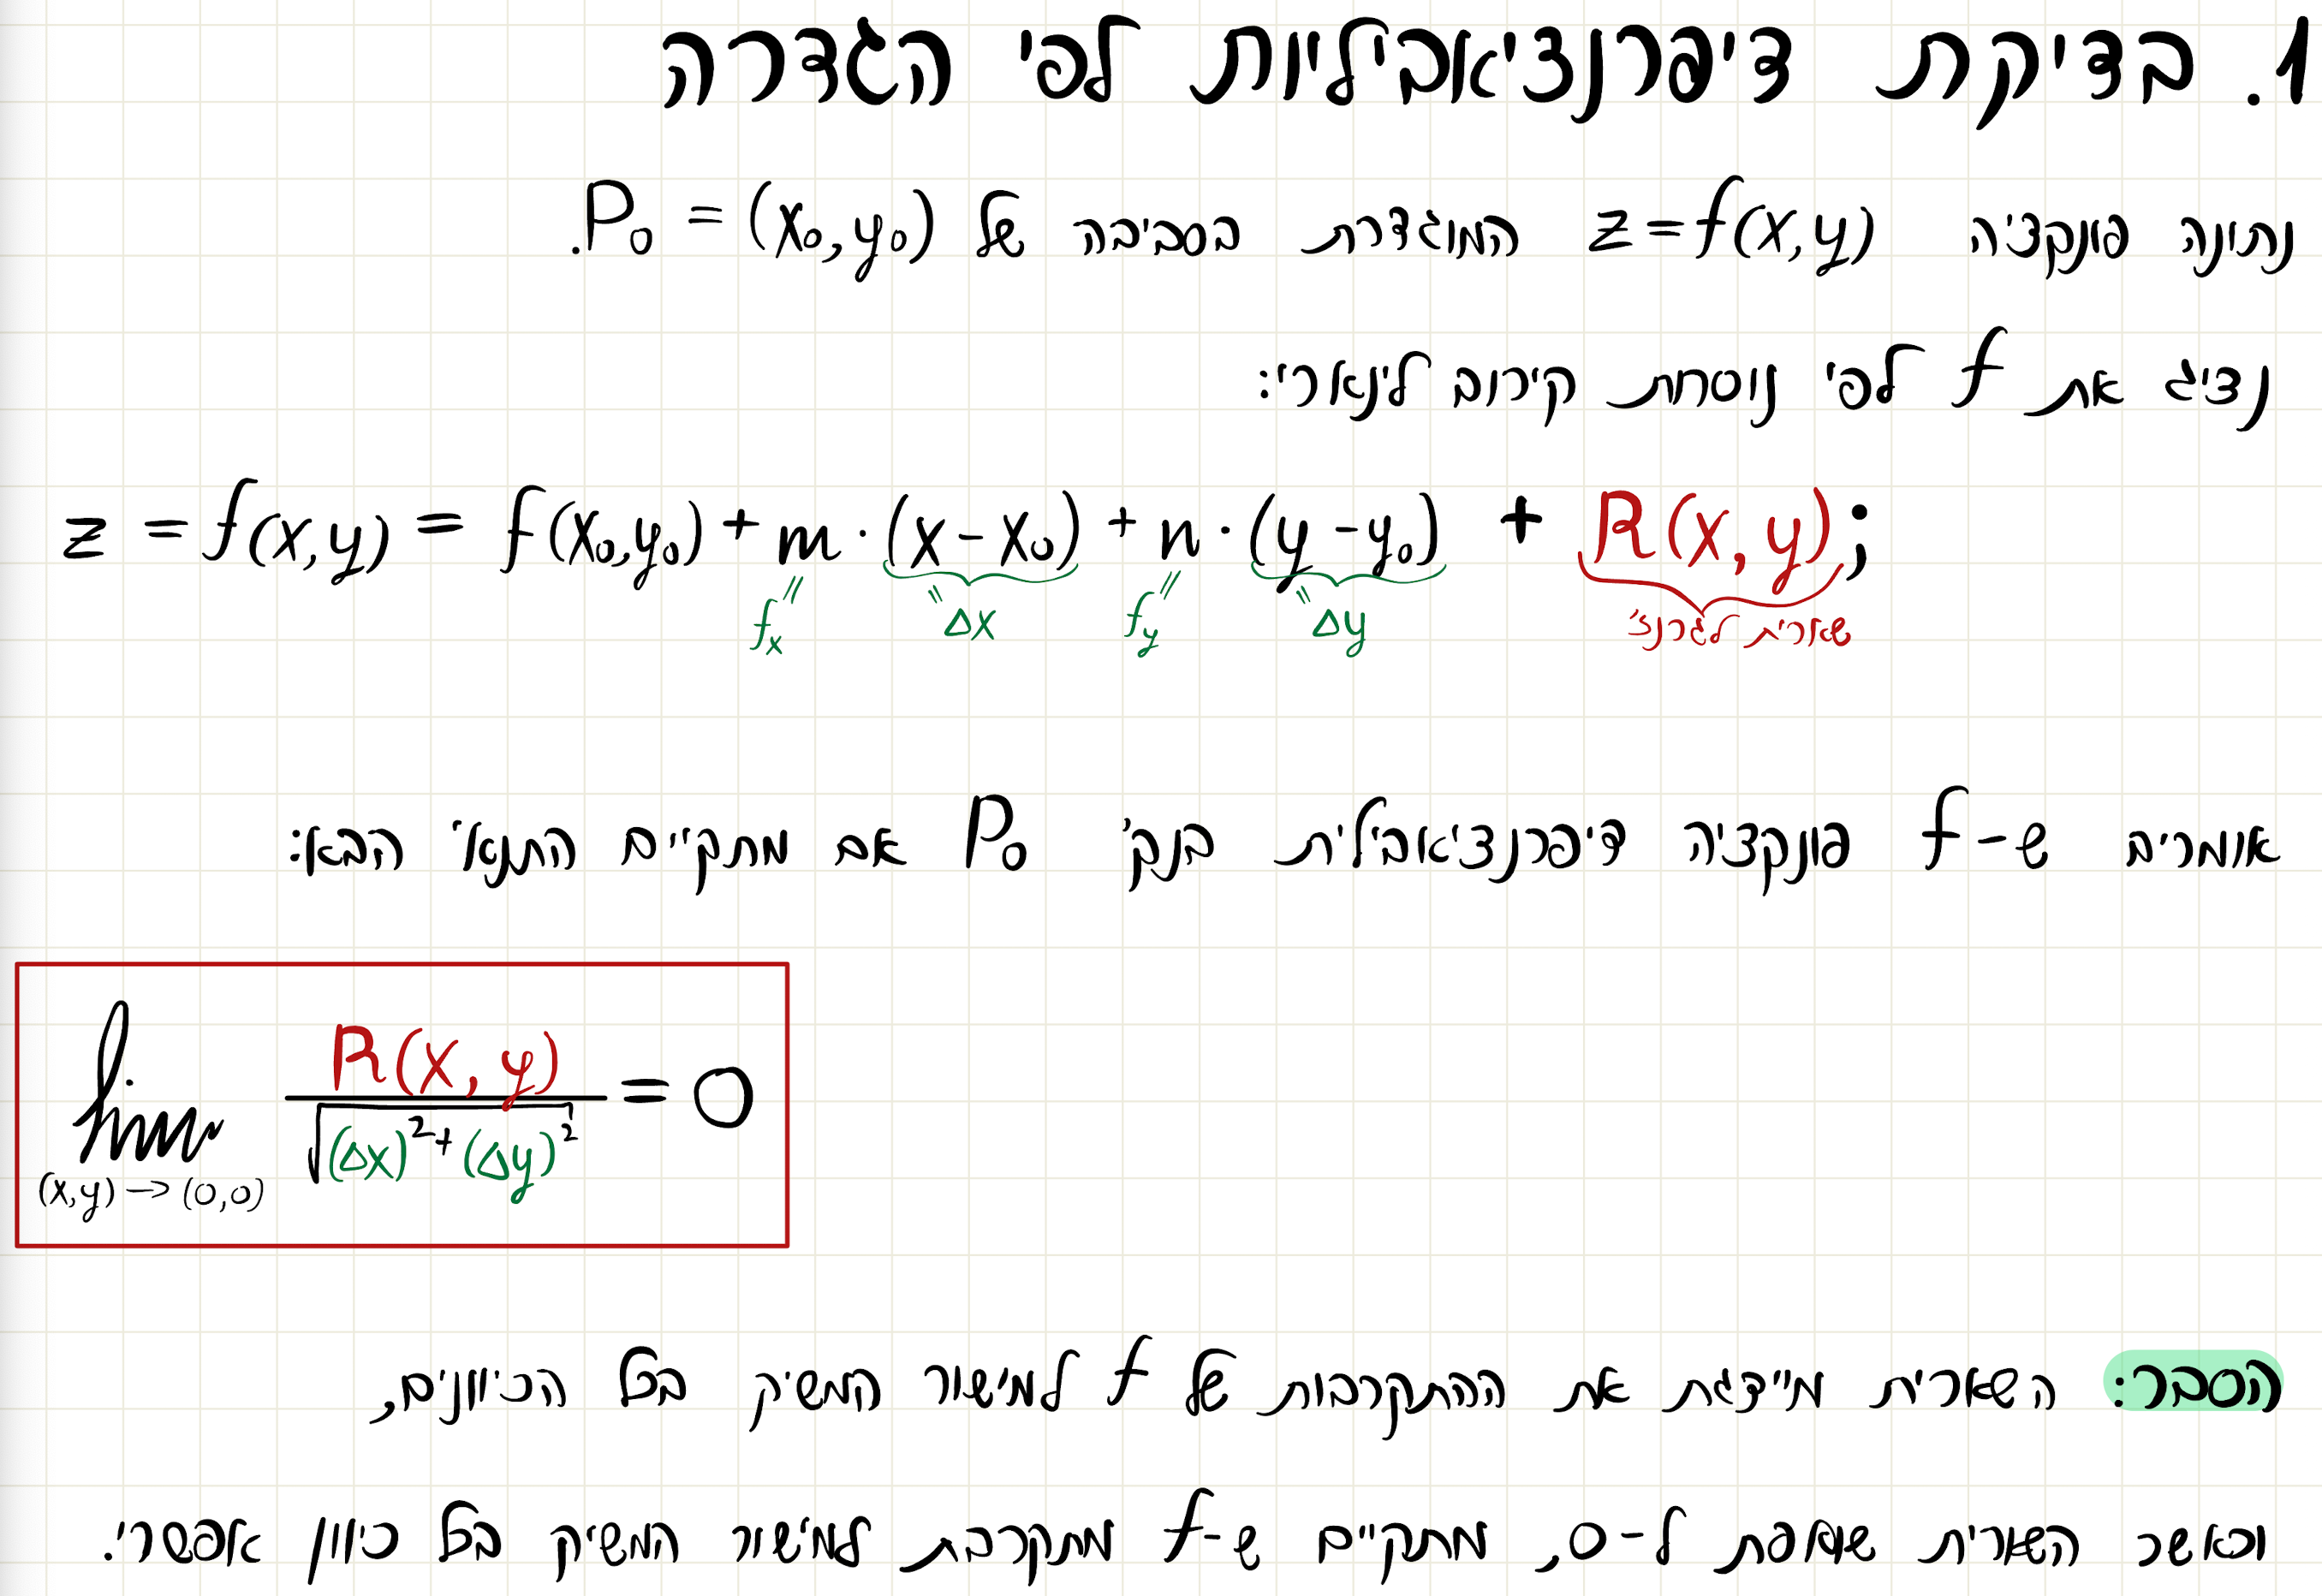 1. בדיקת דיפרנציאביליות לפי הגדרה
נתונה פונקציה z=f(x,y) המוגדרת בסביבה של P₀ = (x₀,y₀).
נציג את f לפי נוסחת קירוב לינארי:
z = f(x,y) = f(x₀,y₀) + m · (x - x₀) + n · (y - y₀) + R(x,y);
f_x " Δx " f_y " Δy " שארית לגרנז'
אומרים ש-f פונקציה דיפרנציאבילית בנק' P₀ אם מתקיים התנאי הבא:
lim (x,y)→(0,0) R(x,y) / √((Δx)² + (Δy)²) = 0
הסבר: השארית מייצגת את ההתקרבות של f למישור המשיק בכל הכיוונים,
וכאשר השארית שואפת ל-0, מתקיים ש-f מתקרבת למישור המשיק בכל כיוון אפשרי.